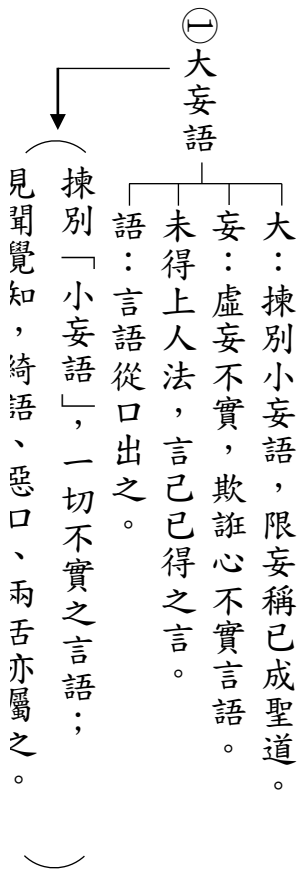 ①大妄語
大：揀別小妄語，限妄稱已成聖道。
妄：虛妄不實，欺誑心不實言語。
未得上人法，言己已得之言。
語：言語從口出之。
（揀別「小妄語」，一切不實之言語；
見聞覺知，綺語、惡口、兩舌亦屬之。）